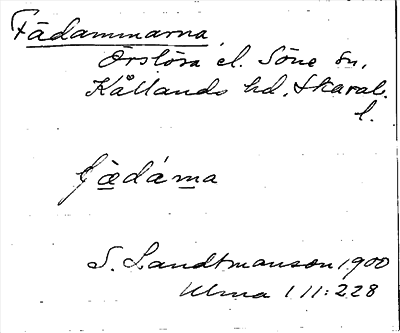 Fädammarna
Örslösa el. Söne sn,
Kållands hd, Skarab.
l.
fædáma
S. Landtmanson 1900
Ulma 111:228